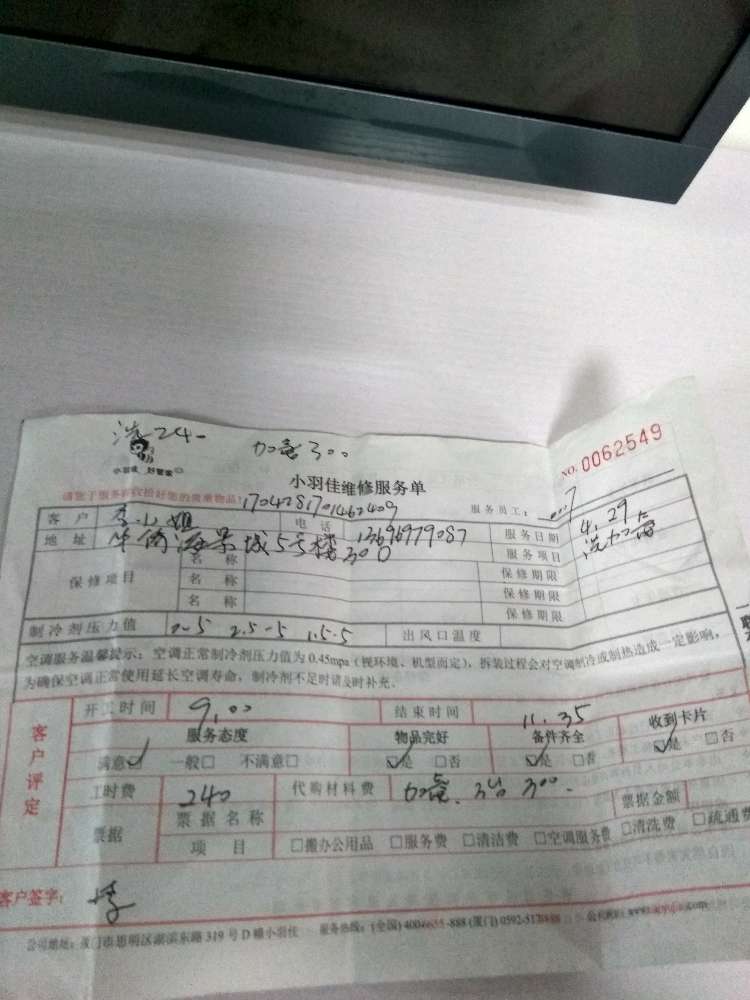 洗240
加氟300
小羽佳 好管家
NO. 0062549
小羽佳维修服务单
请您于服务前收拾好您的贵重物品! 服务员工:
客户 李小姐 电话 13696979087 服务日期 4.29
地址 华侨海景城5号楼300 服务项目 洗加氟
保修项目 名称 保修期限
名称 保修期限
名称 保修期限
制冷剂压力值 2-5 2.5-5 1.5-5 出风口温度
空调服务温馨提示:空调正常制冷剂压力值为0.45mpa(视环境、机型而定),拆装过程会对空调制冷或制热造成一定影响,
为确保空调正常使用延长空调寿命,制冷剂不足时请及时补充.
客户评定
开工时间 9.00 结束时间 11.35
服务态度 物品完好 备件齐全 收到卡片
满意☑ 一般□ 不满意□ ☑是 □否 ☑是 □否 ☑是 □否
工时费 240 代购材料费 加氟.3台 300. 票据金额
票据 票据名称
项目 □搬办公用品 □服务费 □清洁费 □空调服务费 □清洗费 □疏通费
客户签字: 李
公司地址:厦门市思明区湖滨东路319号D幢小羽佳 服务热线:(全国)